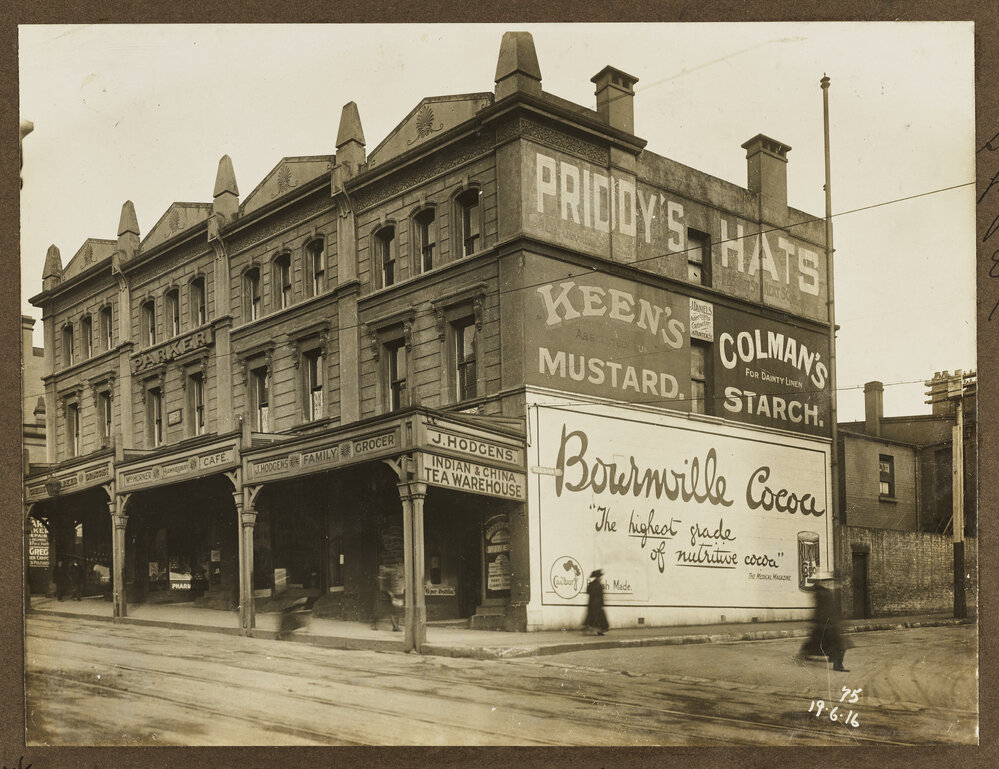 PRIDDY'S HATS
KEEN'S
MUSTARD.
J. DANIELS
COLMAN'S
FOR DAINTY LINEN
STARCH.
PARKER
CAFE.
J. HODGENS FAMILY GROCER
J. HODGENS.
INDIAN & CHINA
TEA WAREHOUSE
Bournville Cocoa
"The highest grade
of nutritive cocoa"
THE MEDICAL MAGAZINE.
Cadbury
Made.
75
19.6.16